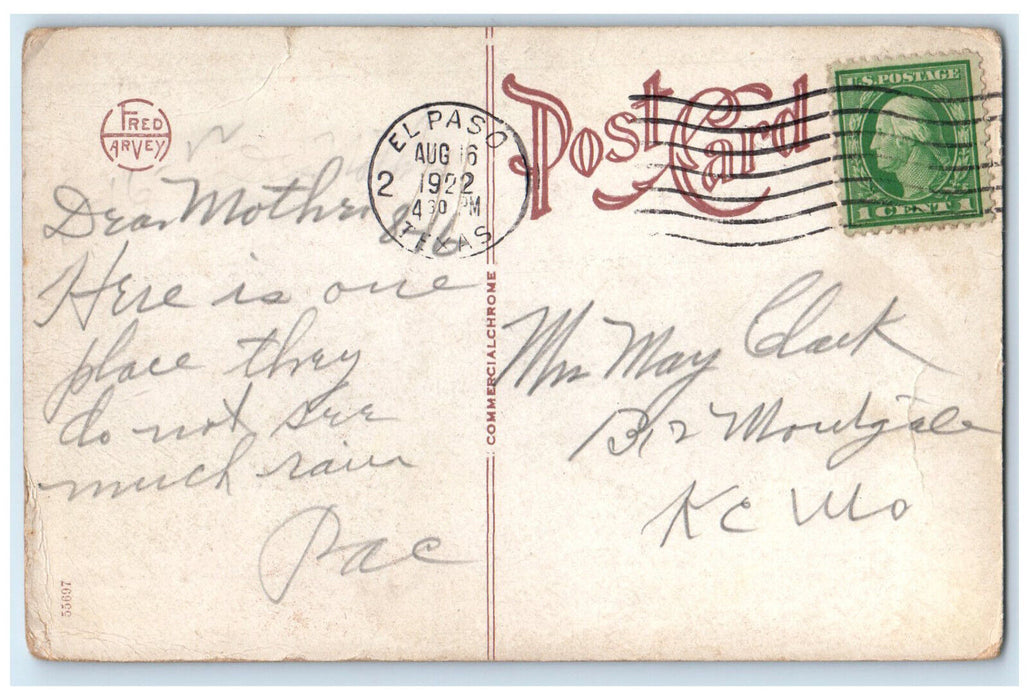 FRED
HARVEY
Post Card
EL PASO
AUG 16
2 1922
4 30 PM
TEXAS
U.S. POSTAGE
1 CENT 1
Dear Mother
Here is one
place they
do not see
much rain
COMMERCIALCHROME
Mrs May Clark
KC Mo
55697